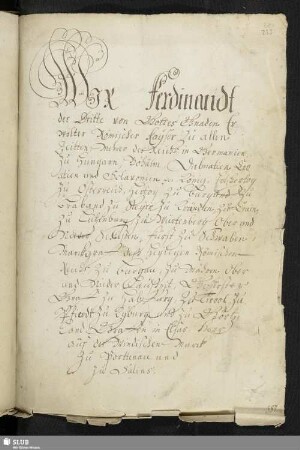 Wir Ferdinandt
der Dritte von Gottes Gnaden Er
wölter Römischer Kayser zu allen
Zeitten Mehrer des Reichs in Germanien
zu Hungarn Böheim Dalmatien Croa
tien und Sclavonien König
zu Burgund zu
Braband zu Steyr zu Kärndten zu Crain
zu Lützenburg zu Württemberg Ober und
Nider Schlesien, Fürst zu Schwaben
Marggraf des Heyligen Römischen
Reichs zu Burgau, zu Mährn Ober
und Nider Laußnitz,
zu Habspurg zu Tyrol zu
Pfierdt zu Kyburg und zu Görtz
Landgraf in Elsas Herr
auf der Windischen March
zu Portenau und
zu Salins
SLUB